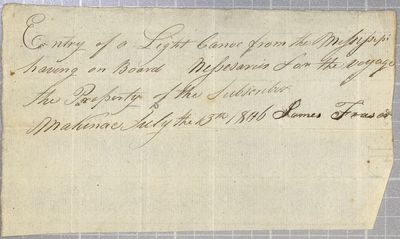 Entry of a Light Canoe from the Missisipi
having on Board Nessosaries for the voyage
the Property of the Subscriber
Makinac July the 13th 1806 James Fraser